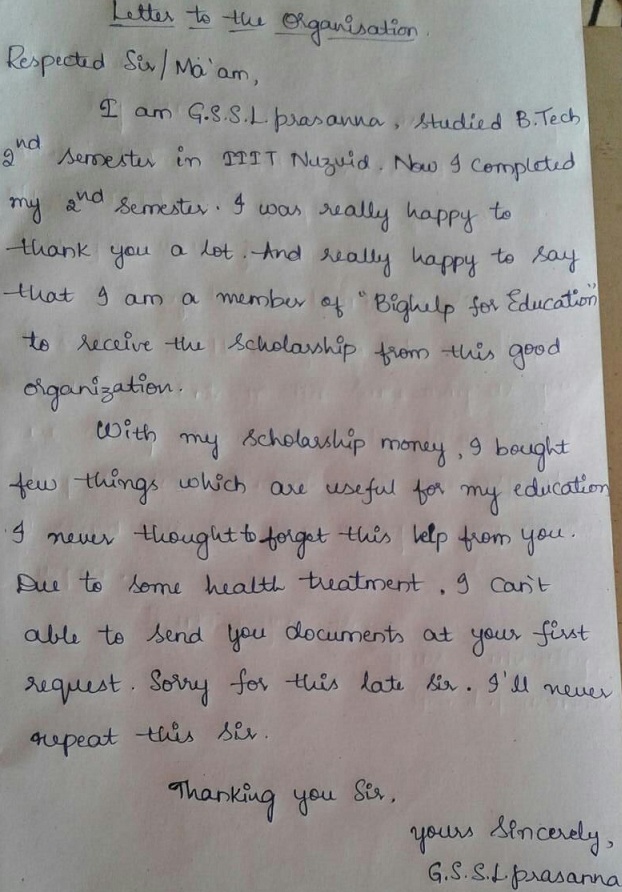 Letter to the Organisation.
Respected Sir/Ma'am,
I am G.S.S.L.prasanna, studied B.Tech
2nd semester in IIIT Nuzvid. Now I completed
my 2nd semester. I was really happy to
thank you a lot. And really happy to say
that I am a member of "Bighelp for Education"
to receive the scholarship from this good
organization.
With my scholarship money, I bought
few things which are useful for my education
I never thought to forget this help from you.
Due to some health treatment, I can't
able to send you documents at your first
request. Sorry for this late sir. I'll never
repeat this sir.
Thanking you Sir,
yours Sincerely,
G.S.S.L.prasanna